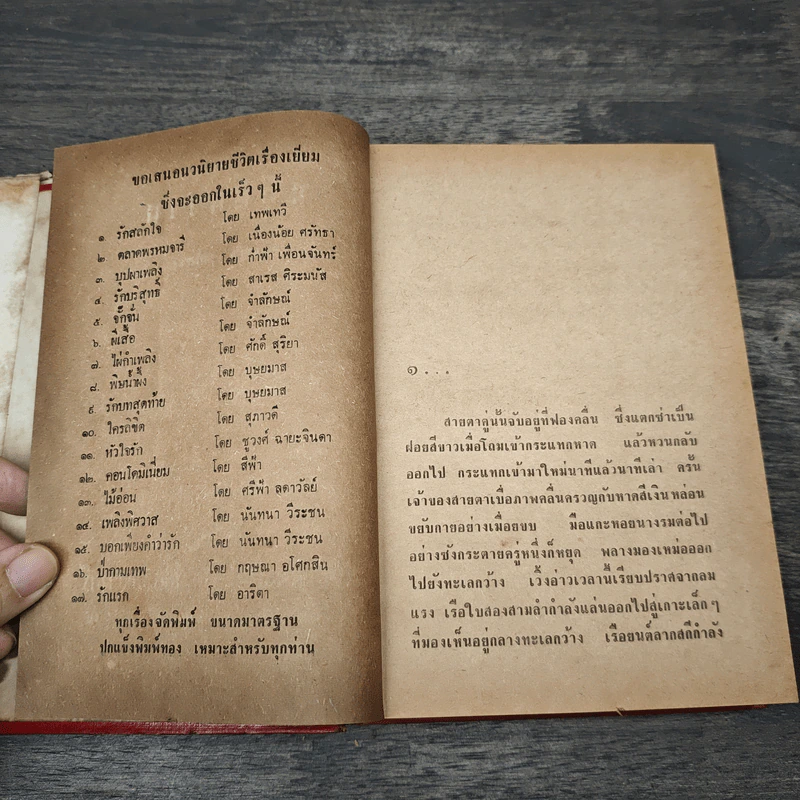 ขอเสนอนวนิยายชีวิตเรื่องเยี่ยม
ซึ่งจะออกในเร็ว ๆ นี้
๑. รักสลักใจ โดย เทพเทวี
๒. ตลาดพรหมจารี โดย เนื่องน้อย ศรัทธา
๓. บุปผาเพลิง โดย ก่ำฟ้า เพื่อนจันทร์
๔. รักบริสุทธิ์ โดย สาเรส ศิระมนัส
๕. จั๊กจั่น โดย จำลักษณ์
๖. ผีเสื้อ โดย จำลักษณ์
๗. ไผ่กำเพลิง โดย ศักดิ์ สุริยา
๘. พิษน้ำผึ้ง โดย บุษยมาส
๙. รักบทสุดท้าย โดย บุษยมาส
๑๐. ใครลิขิต โดย สุภาวดี
๑๑. หัวใจรัก โดย ชูวงศ์ ฉายะจินดา
๑๒. คอนโดมิเนี่ยม โดย สีฟ้า
๑๓. ไม้อ่อน โดย ศรีฟ้า ลดาวัลย์
๑๔. เพลิงพิศวาส โดย นันทนา วีระชน
๑๕. บอกเพียงคำว่ารัก โดย นันทนา วีระชน
๑๖. ป่ากามเทพ โดย กฤษณา อโศกสิน
๑๗. รักแรก โดย อาริตา
ทุกเรื่องจัดพิมพ์ ขนาดมาตรฐาน
ปกแข็งพิมพ์ทอง เหมาะสำหรับทุกท่าน
๑ . . .
สายตาคู่นั้นจับอยู่ที่ฟองคลื่น ซึ่งแตกซ่าเป็น
ฝอยสีขาวเมื่อโถมเข้ากระแทกหาด แล้วหวนกลับ
ออกไป กระแทกเข้ามาใหม่นาทีแล้วนาทีเล่า ครั้น
เจ้าของสายตาเบื่อภาพคลื่นครวญกับหาดสีเงิน หล่อน
ขยับกายอย่างเมื่อยขบ มือแกะหอยนางรมต่อไป
อย่างซังกะตายครู่หนึ่งก็หยุด พลางมองเหม่อออก
ไปยังทะเลกว้าง เวิ้งอ่าวเวลานี้เรียบปราศจากลม
แรง เรือใบสองสามลำกำลังแล่นออกไปสู่เกาะเล็ก ๆ
ที่มองเห็นอยู่กลางทะเลกว้าง เรือยนต์ลากสกีกำลัง